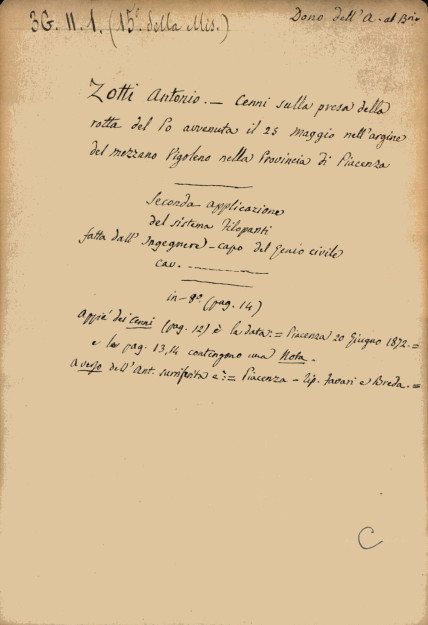 3G. II. 1. (15ª della Mis.)
Dono dell'A. al B
Zotti Antonio. — Cenni sulla presa della
rotta del Po avvenuta il 25 Maggio nell'argine
del mezzano Vigoleno nella Provincia di Piacenza
Seconda applicazione
del sistema Filopanti
fatta dall'Ingegnere-capo del Genio civile
cav. ————
in-8º. (pag. 14)
Appiè dei Cenni (pag. 12) è la data: = Piacenza 20 Giugno 1872. =
e le pag. 13,14 contengono una Nota.
A verso dell'Ant. surriferita è: = Piacenza — Tip. Favari e Breda. =
C